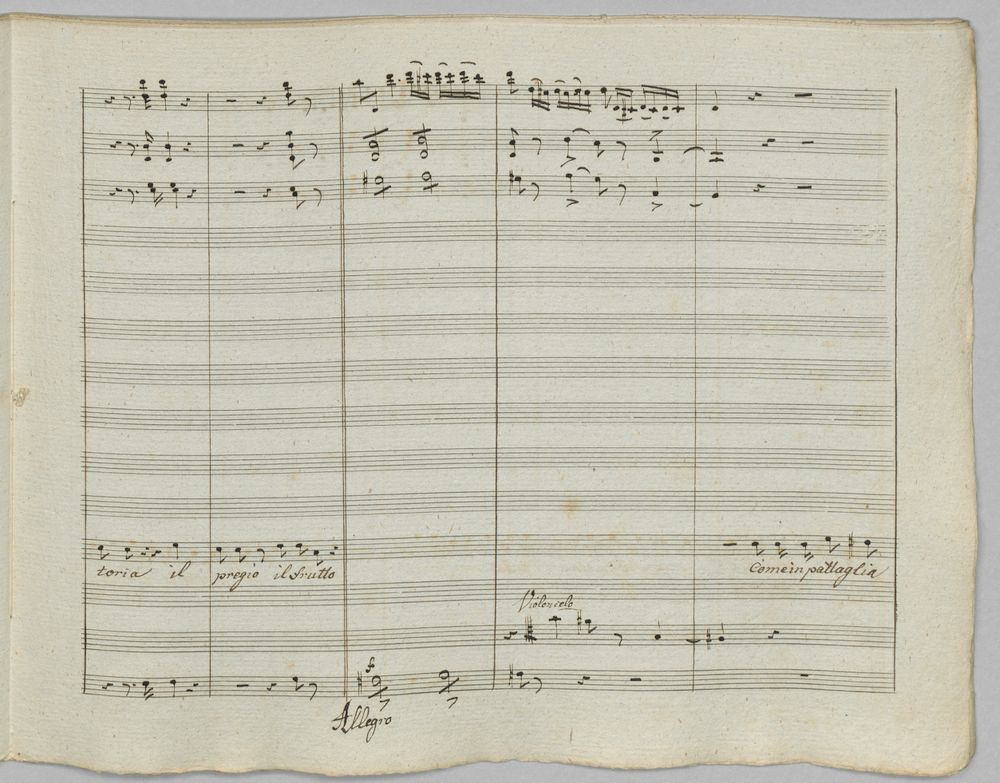 toria il pregio il frutto
Come in pattaglia
Violoncelo
f
Allegro